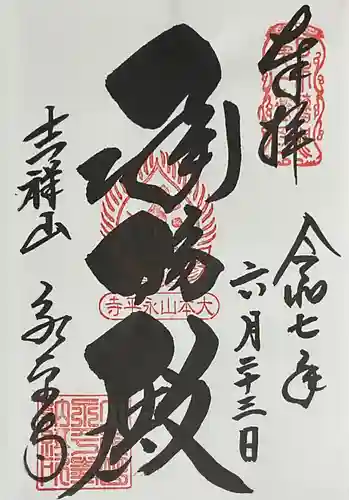 奉拝
令和七年
六月二十三日
承陽殿
大本山永平寺
吉祥山
永平寺